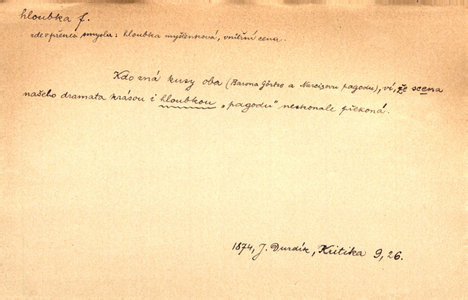 hloubka f.
zde v přenes. smyslu: hloubka myšlenková, vnitřní cena.
Kdo zná kusy oba (Barona Görtze a Narcisovu pagodu), ví, že scena
našeho dramata krásou i hloubkou „pagodu" neskonale překoná.
1874, J. Durdík, Kritika 9, 26.